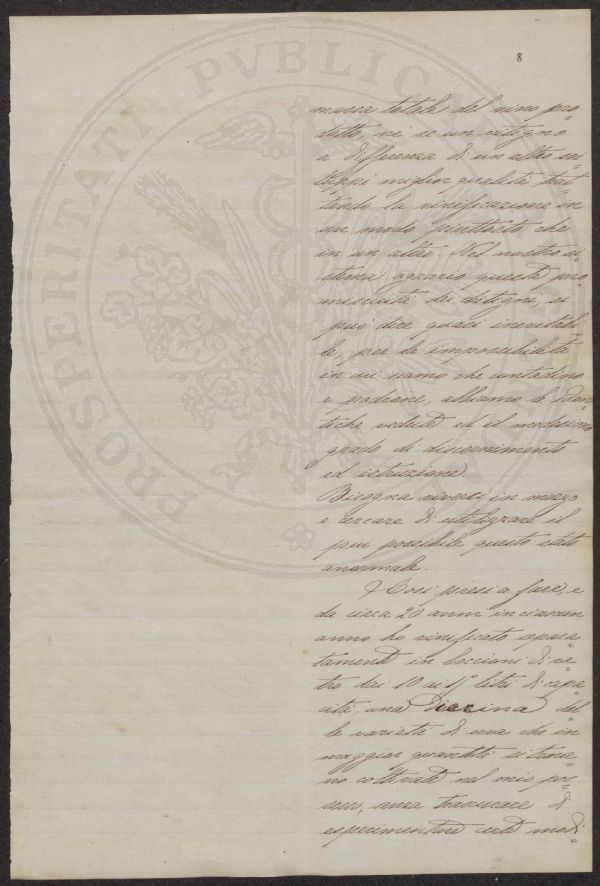 8
massa totale del vino pro=
dotto, nè se un vitigno
a differenza di un altro svi=
luppi miglior qualità trat=
tando la vinificazione in
un modo piuttosto che
in un altro. Nel nostro si=
stema agrario questa pro=
miscuità di vitigni, si
può dire quasi inevitabi=
le, per la impossibilità
in cui siamo che contadino
e padrone, abbiano le iden=
tiche vedute ed il medesimo
grado di discernimento
ed istruzione.
Bisogna viverci in mezzo
e cercare di utilizzare il
più possibile questo stato
anormale.
Così presi a fare, e
da circa 20 anni in ciascun
anno ho vinificato separa=
tamente in boccioni di ve=
tro dai 10 ai 15 litri di capa=
cità, una diecina del=
le varietà di uva che in
maggior quantità si trova=
no coltivate nel mio pos=
sesso, senza trascurare di
esperimentare certe modi=
PROSPERITATI PVBLICAE